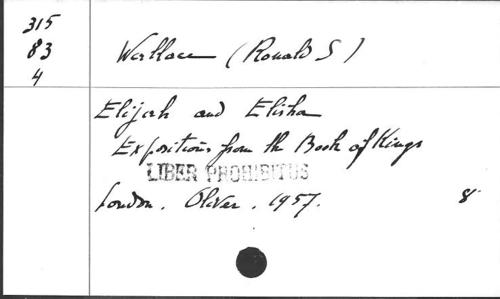 315
83
4
Wallace (Ronald S)
Elijah and Elisha
Expositions from the Book of Kings
LIBER PROHIBITUS
London. Oliver. 1957.
8°